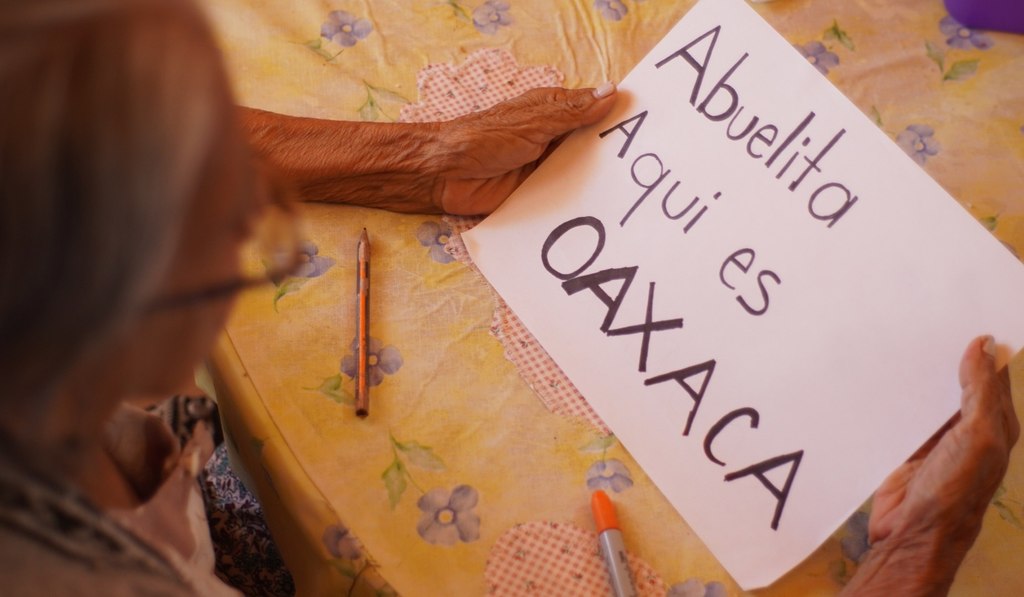 Abuelita
Aqui es
OAXACA